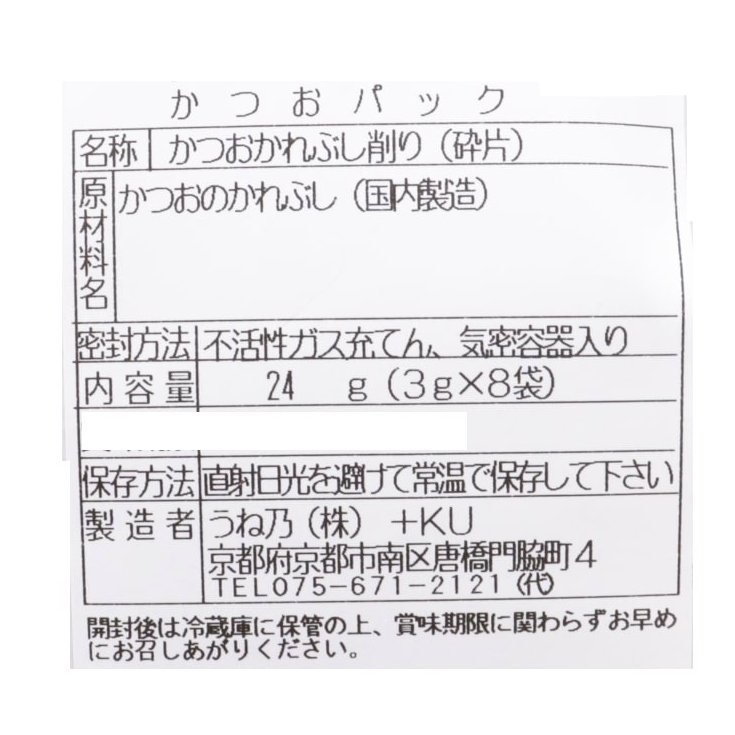 かつおパック
名称 かつおかれぶし削り（砕片）
原材料名 かつおのかれぶし（国内製造）
密封方法 不活性ガス充てん、気密容器入り
内容量 24 g（3g×8袋）
保存方法 直射日光を避けて常温で保存して下さい
製造者 うね乃（株） +KU
京都府京都市南区唐橋門脇町4
TEL075-671-2121（代）
開封後は冷蔵庫に保管の上、賞味期限に関わらずお早め
にお召しあがりください。